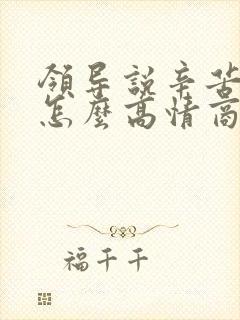 領导說辛苦
怎麼高情商
福千千